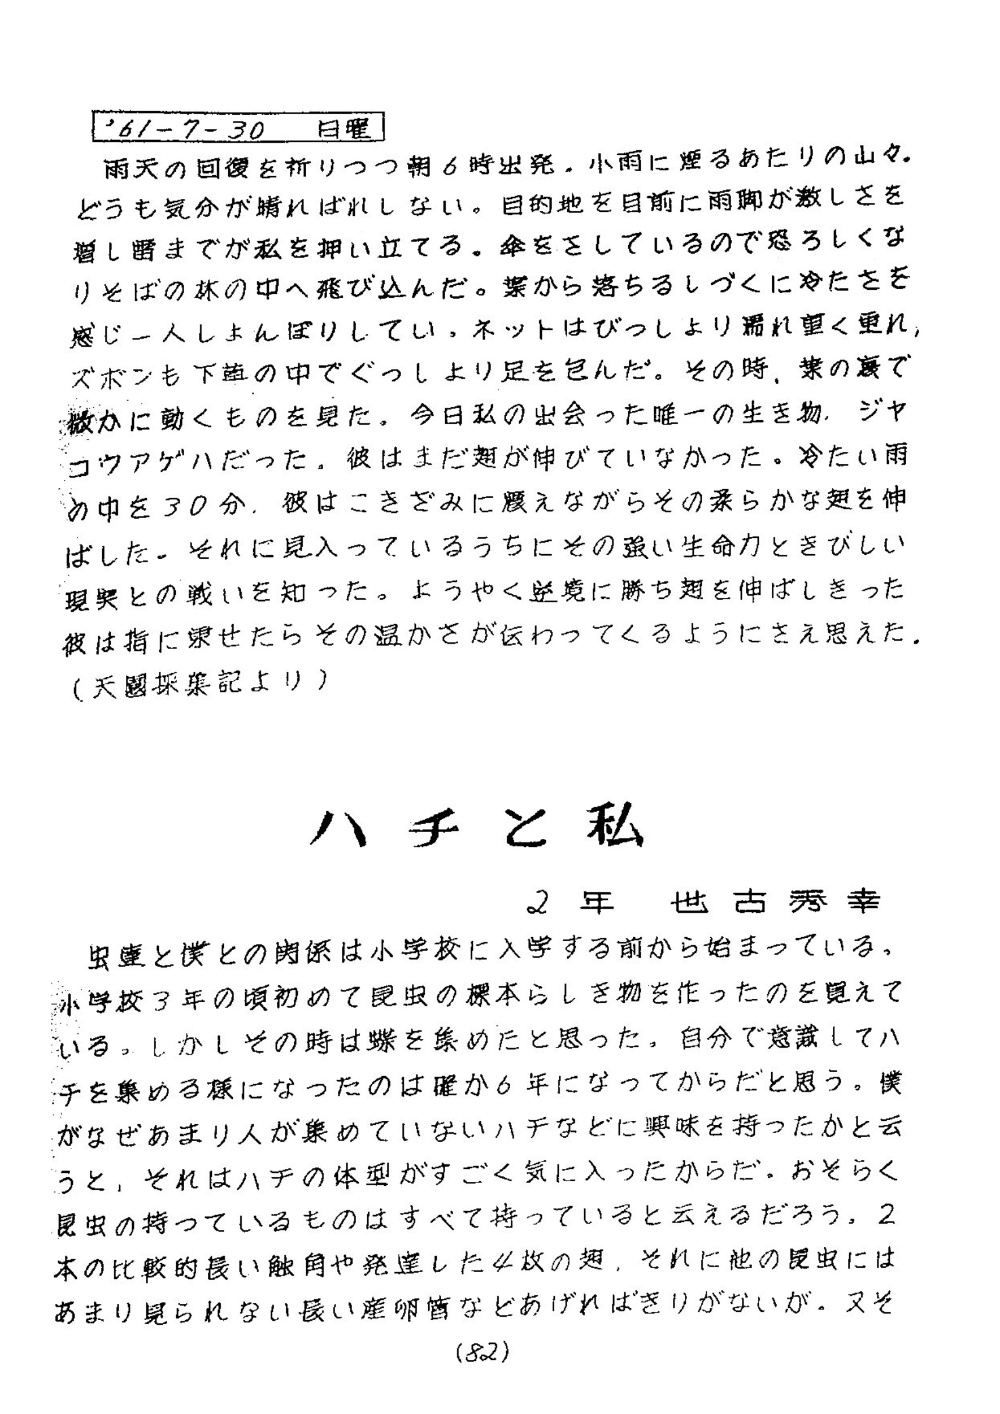 '61-7-30 日曜
雨天の回復を祈りつつ朝6時出発。小雨に煙るあたりの山々。
どうも気分が晴ればれしない。目的地を目前に雨脚が激しさを
増し雷までが私を押い立てる。傘をさしているので恐ろしくな
りそばの林の中へ飛び込んだ。葉から落ちるしづくに冷たさを
感じ一人しょんぼりしてい。ネットはびっしより濡れ重く垂れ,
ズボンも下草の中でぐっしより足を包んだ。その時、葉の裏で
微かに動くものを見た。今日私の出会った唯一の生き物、ジャ
コウアゲハだった。彼はまだ翅が伸びていなかった。冷たい雨
の中を30分、彼はこきざみに震えながらその柔らかな翅を伸
ばした。それに見入っているうちにその強い生命力ときびしい
現実との戦いを知った。ようやく逆境に勝ち翅を伸ばしきった
彼は指に乗せたらその温かさが伝わってくるようにさえ思えた。
(天国採集記より)
ハチと私
2年 世古秀幸
虫達と僕との関係は小学校に入学する前から始まっている。
小学校3年の頃初めて昆虫の標本らしき物を作ったのを覚えて
いる。しかしその時は蝶を集めたと思った。自分で意識してハ
チを集める様になったのは確か6年になってからだと思う。僕
がなぜあまり人が集めていないハチなどに興味を持ったかと云
うと、それはハチの体型がすごく気に入ったからだ。おそらく
昆虫の持っているものはすべて持っていると云えるだろう。2
本の比較的長い触角や発達した4枚の翅、それに他の昆虫には
あまり見られない長い産卵管などあげればきりがないが。又そ
(82)